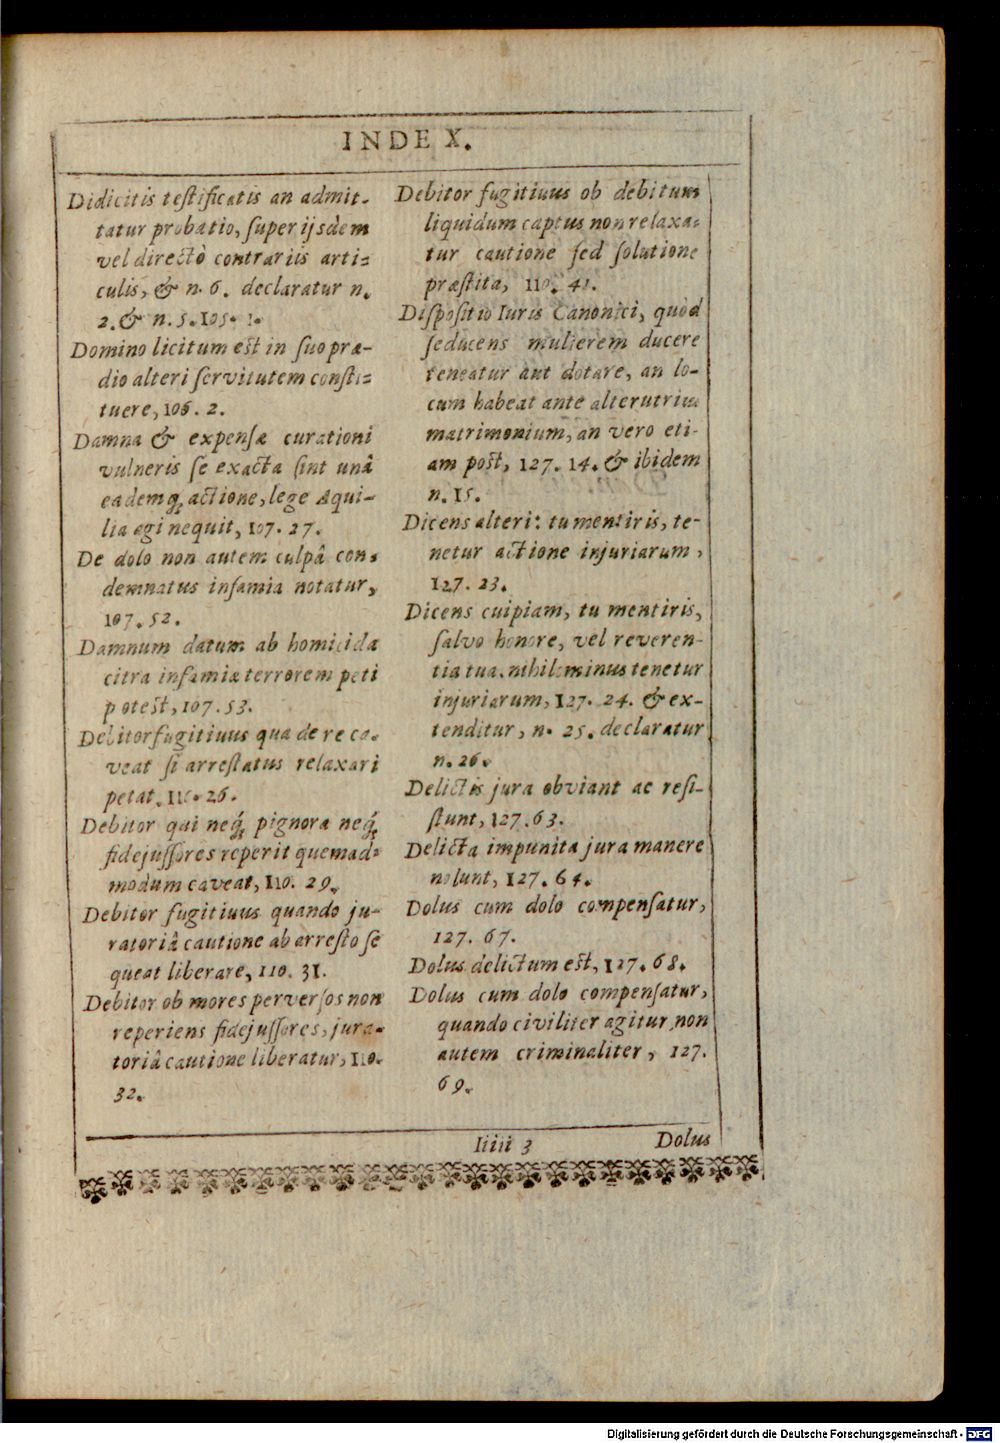 INDEX.
Didicitis testificatis an admit-
tatur probatio, super ijsdem
vel directò contrariis arti-
culis, & n. 6. declaratur n.
2. & n. 5. 105. 1.
Domino licitum est in suo præ-
dio alteri servitutem consti-
tuere, 106. 2.
Damna & expensæ curationi
vulneris se exacta sint unâ
eademq; actione, lege Aqui-
lia agi nequit, 107. 27.
De dolo non autem culpâ con-
demnatus infamia notatur,
107. 52.
Damnum datum ab homicida
citra infamiæ terrorem peti
potest, 107. 53.
Debitor fugitivus qua de re ca-
veat si arrestatus relaxari
petat, 110. 26.
Debitor qui neq; pignora neq;
fidejussores reperit quemad-
modum caveat, 110. 29.
Debitor fugitiuus quando ju-
ratoriâ cautione ab arresto se
queat liberare, 110. 31.
Debitor ob mores perversos non
reperiens fidejussores, jura-
toriâ cautione liberatur, 110.
32.
Debitor fugitiuus ob debitum
liquidum captus non relaxa-
tur cautione sed solutione
præstita, 110. 41.
Dispositio Iuris Canonici, quòd
seducens mulierem ducere
teneatur aut dotare, an lo-
cum habeat ante alterutrius
matrimonium, an vero eti-
am post, 127. 14. & ibidem
n. 15.
Dicens alteri: tu mentiris, te-
netur actione injuriarum,
127. 23.
Dicens cuipiam, tu mentiris,
salvo honore, vel reveren-
tia tua, nihilominus tenetur
injuriarum, 127. 24. & ex-
tenditur, n. 25. declaratur
n. 26.
Delictis jura obviant ac resi-
stunt, 127. 63.
Delicta impunita jura manere
nolunt, 127. 64.
Dolus cum dolo compensatur,
127. 67.
Dolus delictum est, 127. 68.
Dolus cum dolo compensatur,
quando civiliter agitur, non
autem criminaliter, 127.
69.
Iiiii 3
Dolus
Digitalisierung gefördert durch die Deutsche Forschungsgemeinschaft - DFG